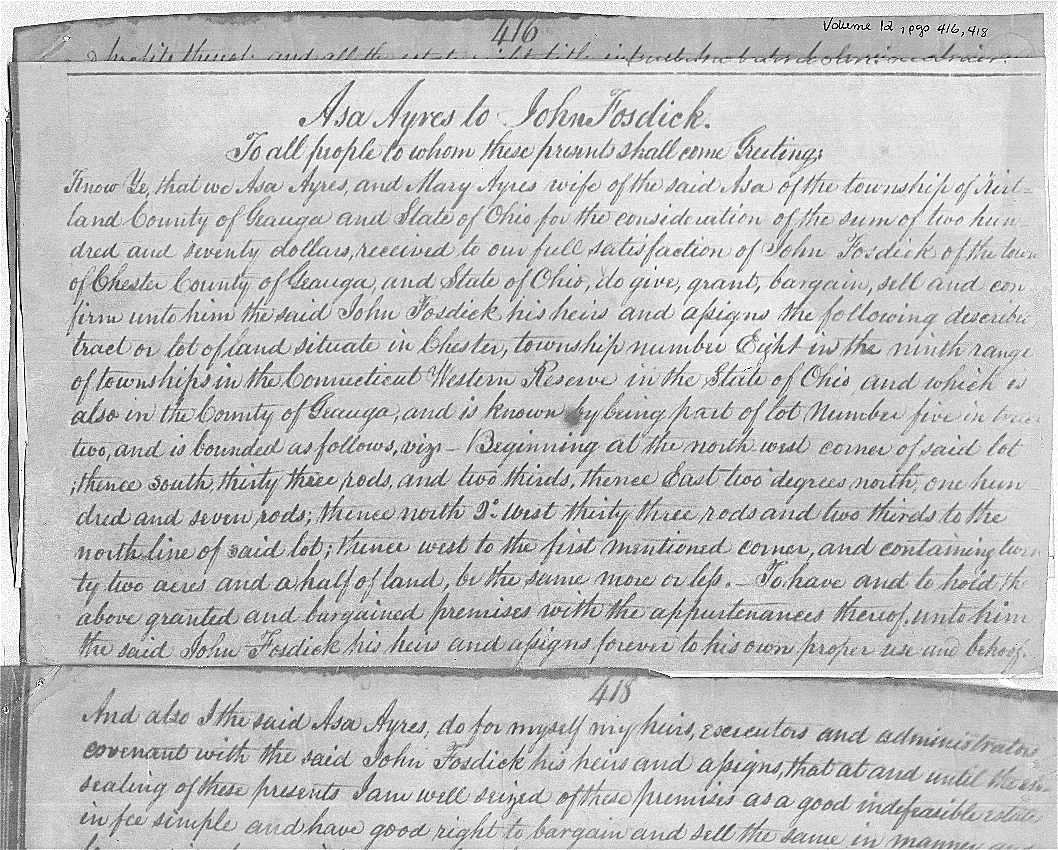 416
Volume 12, pgs 416, 418
profits thereof; and all the estate, right title, in
Asa Ayres to John Fosdick.
To all people to whom these presents shall come Greeting;
Know Ye, that we Asa Ayres, and Mary Ayres wife of the said Asa of the township of Kirt-
land County of Geauga and State of Ohio for the consideration of the sum of two hun-
dred and seventy dollars, received to our full satisfaction of John Fosdick of the town
of Chester County of Geauga, and State of Ohio, do give, grant, bargain, sell and con
firm unto him the said John Fosdick his heirs and assigns the following describe
tract or lot of land situate in Chester, township number Eight in the ninth range
of townships in the Connecticut Western Reserve in the State of Ohio and which is
also in the County of Geauga, and is known by being part of lot Number five in tract
two, and is bounded as follows, viz, - Beginning at the north west corner of said lot
; thence south, thirty three rods, and two thirds, thence East two degrees north, one hun
dred and seven rods; thence north 2° west thirty three rods and two thirds to the
north line of said lot; thence west to the first mentioned corner, and containing twen
ty two acres and a half of land, be the same more or less. - To have and to hold the
above granted and bargained premises with the appurtenances thereof, unto him
the said John Fosdick his heirs and assigns forever to his own proper use and behoof.
418
And also I the said Asa Ayres, do for myself my heirs, executors and administrators
covenant with the said John Fosdick his heirs and assigns, that at and until the en
sealing of these presents I am well seized of these premises as a good indefeasible estate
in fee simple and have good right to bargain and sell the same in manner and